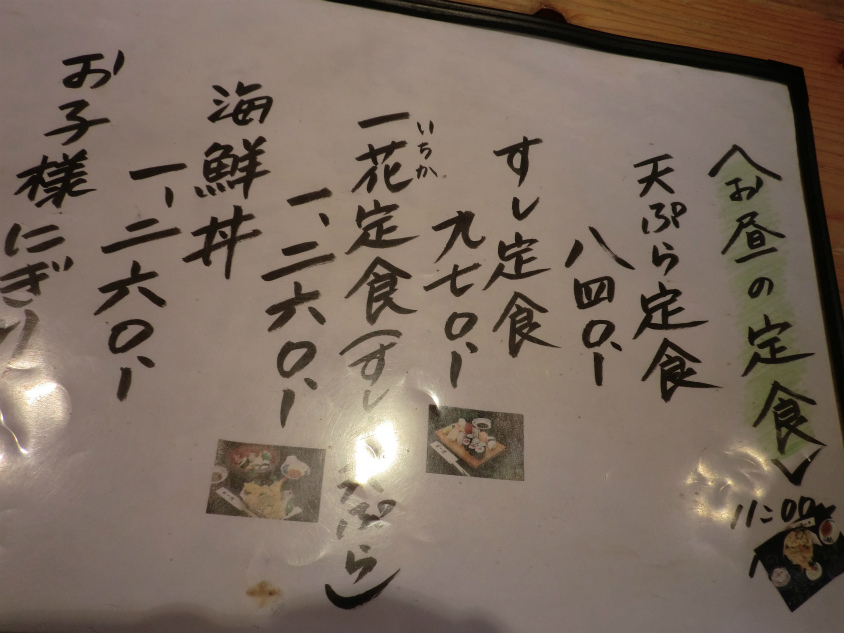 〈お昼の定食〉
11:00〜
天ぷら定食
八四〇、ー
すし定食
九七〇、ー
いちか
一花定食(すし 天ぷら)
一、二六〇、ー
海鮮丼
一、二六〇、ー
お子様にぎり